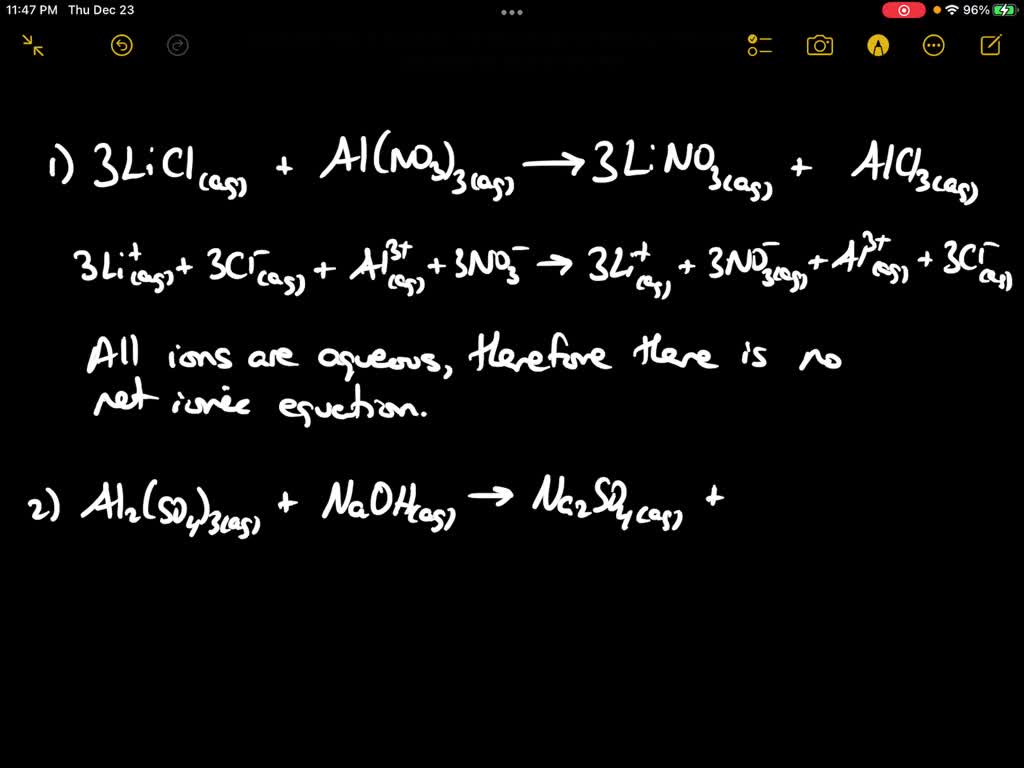 11:47 PM Thu Dec 23
96%
1) 3LiCl(aq) + Al(NO3)3(aq) → 3LiNO3(aq) + AlCl3(aq)
3Li+(aq) + 3Cl-(aq) + Al3+(aq) + 3NO3- → 3Li+(aq) + 3NO3-(aq) + Al3+(aq) + 3Cl-(aq)
All ions are aqueous, therefore there is no
net ionic equation.
2) Al2(SO4)3(aq) + NaOH(aq) → Na2SO4(aq) +